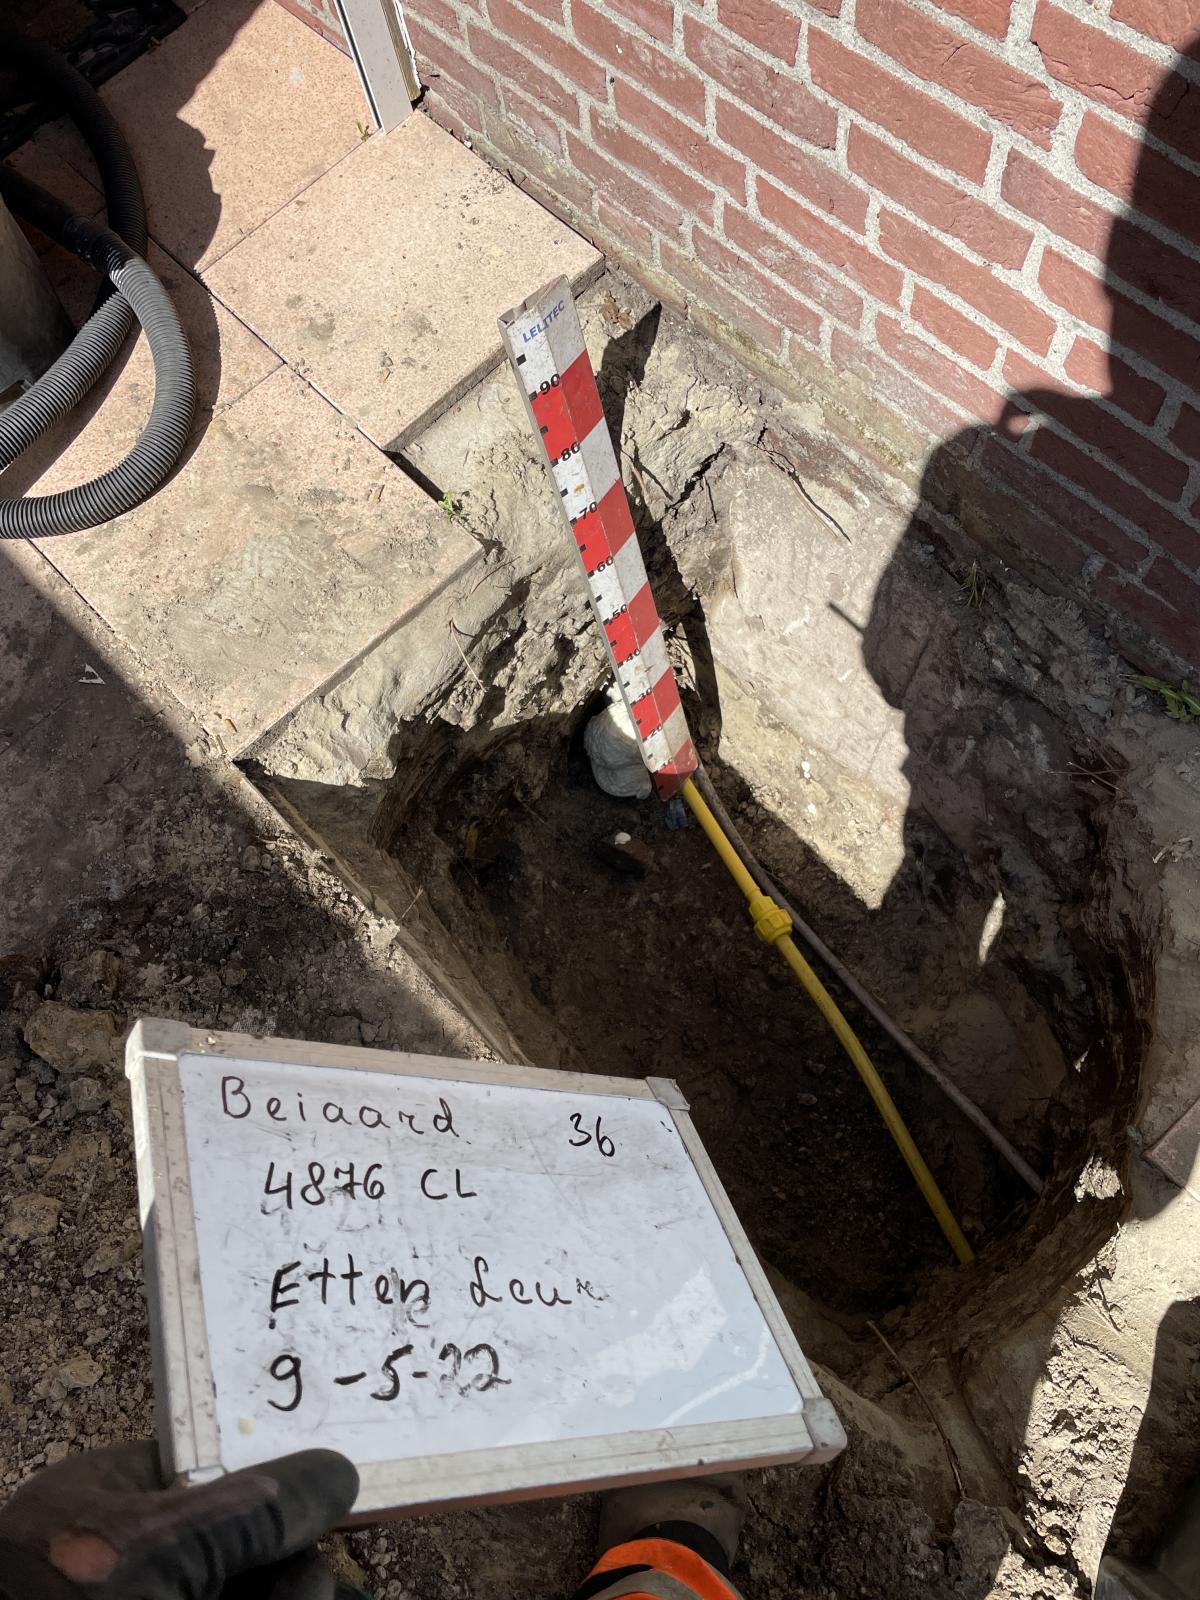 LELITEC
90
80
70
60
50
40
30
20
Beiaard 36
4876 CL
Etten Leur
9-5-22